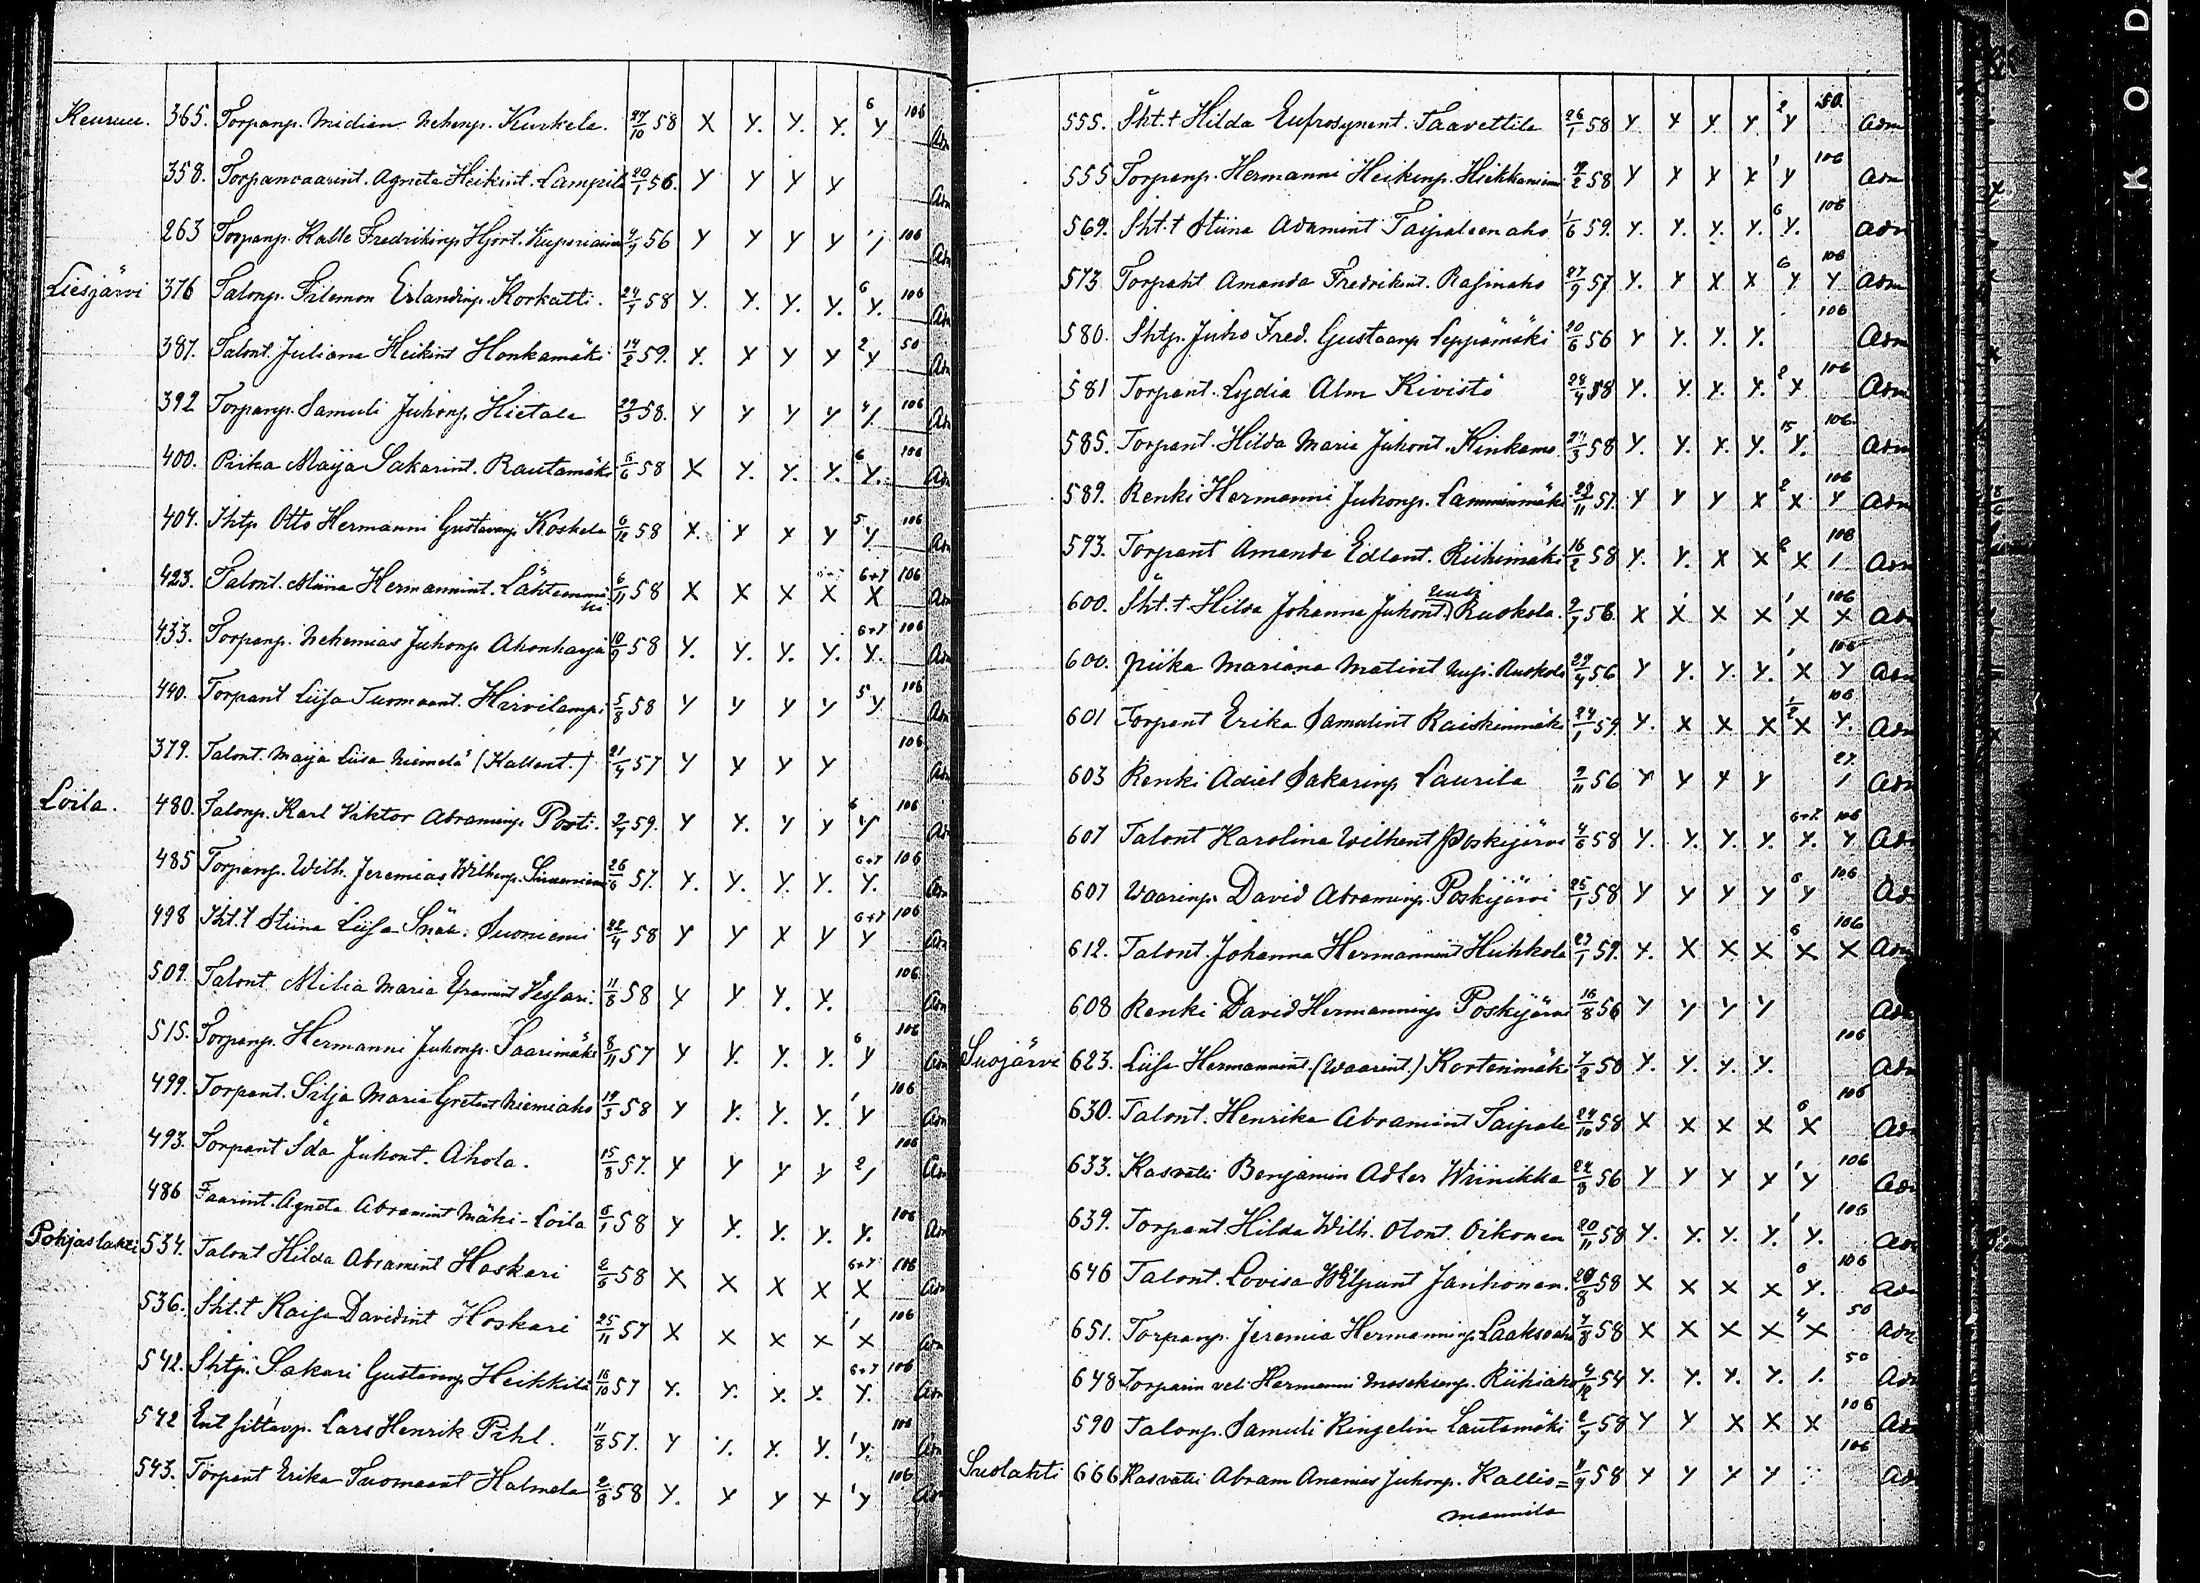 Keuruu. 365. Torpanp. Midian Nehemp. Kurkela. 27/10 58 X Y. Y. Y. 6 Y 106 Adm
358. Torpanvaarint. Agneta Heikint. Lampila 20/1 56. Y Y Y Y Adm
263 Torpanp. Kalle Fredrikinp. Hjort. 56 Y Y Y Y 106 Adm
Liesjärvi 376 Talonp. Filemon Erlandinp. Korkatti. 58 Y. Y. Y. Y. 6 Y. 106 Adm
387. Talont. Juliana Heikint Honkamäki 14/2 59. Y. X Y Y 2 Y 50 Adm
392 Torpanp. Samuli Juhonp. Hietala 29/3 58. Y Y Y Y 106 Adm
400. Piika Maija Sakarint. Rautamäki 6/6 58 X Y. Y. Y. 6 Y. 106 Adm
404. Ihtp. Otto Hermanni Gustavinp Koskela 6/12 58 X. Y X Y 5 Y. 106 Adm
423. Talont. Miina Hermannint. 6/11 58 X X X X 6+7 X 106 Adm
433. Torpanp. Nehemias Juhonp Ahonharja 10/9 58 Y. Y. Y. Y. 6+7 Y. 106 Adm
440. Torpant Liisa Tuomaant. Hirvilampi 5/8 58 Y Y Y Y 5 Y. 106 Adm
379. Talont. Maija Liisa Niemelä (Kallent.) 21/4 57 Y Y Y Y 106 Adm
Loila. 480. Talonp. Karl Viktor Abraminp. Posti. 59. Y Y. Y Y 6 Y 106 Adm
485 Torpanp. Wilh. Jeremias Wilhemp. 26/6 57. Y. Y. Y. Y. 6+7 Y. 106 Adm
498 Iht.t Stiina Liisa Suoniemi 22/4 58 Y Y X Y 6+7 Y 106 Adm
509. Talont Milia Maria Vessari. 11/8 58 Y Y Y. Y. 106 Adm
515. Torpanp. Hermanni Juhonp. Saarimäki 8/11 57 Y Y. Y. Y. 6 Y 106 Adm
499. Torpant. Silja Maria Niemiaho 19/3 58 Y Y. Y. Y. 1 Y 106 Adm
493. Torpant Ida Juhont. Ahola. 15/8 57. Y Y Y Y 2 106 Adm
486 Faarint. Agneta Abramint Mäki-Loila 6/1 58 Y Y. Y. Y. Y. 106 Adm
Pohjaslahti 534. Talont Hilda Abramint Hoskari 58 X X X X 6+7 X 106 Adm
536. Iht.t Kaisa Davidint Hoskari 25/11 57 X X X X 1 X 106 Adm
542. Ihtp. Sakari Gustavinp Heikkilä 16/10 57 Y. Y. X. X. 6+7 Y. 106 Adm
542 Ent. Lars Henrik Pihl. 11/8 57. Y Y. Y. Y. 1 Y. 106 Adm
543. Torpant Erika Tuomaant Halmela 2/8 58 Y. Y Y X 1 Y 106 Adm
555. Iht.t Hilda Eufrosynent. Taavettila 26/1 58 Y Y Y. Y 2 Y 50. Adm
555 Torpanp. Hermanni Heikinp. 58 Y Y Y X 1 Y 106 Adm
569. Iht.t Stiina Adamint Taipaleenaho 1/6 59. Y. Y. Y. Y. 6 Y. 106 Adm
573 Torpant Amanda Fredrikint. Rasinaho 27/9 57 Y. Y X X 6 Y Y 106 Adm
580. Ihtp. Juho Fred. Gustaanp Seppämäki 20/6 56 Y Y. Y. Y. 106 Adm
581 Torpant. Lydia Alm Kivistö 58 Y. Y. Y. Y. 2 Y. 106 Adm
585. Torpant. Hilda Maria Juhont. 58 Y. Y. Y. Y. 15 Y. 106 Adm
589. Renki Hermanni Juhonp. Lamminmäki 57. Y Y Y X 2 X Y 106 Adm
593. Torpant Amanda Edlant. Riihimäki 16/2 58 Y. Y. X X 2 X 1 106 Adm
600. Iht.t Hilda Johanna Juhont. Uusi Ruokola. 56. X X X X 1 X X 106 Adm
600. Piika Mariana Matint Uusi-Ruokola 56 Y Y. Y. Y. 1 X Y 106 Adm
601 Torpant Erika Samulint Raiskinmäki 24/1 59 Y. X X X 1/2 X Y. 106 Adm
603 Renki Adiel Sakarinp Laurila 9/11 56 Y Y Y Y 1 27. Adm
607 Talont Karolina Wilhent Poskijärvi 4/6 58 Y. Y. Y. Y. 6+7. Y. Y 106 Adm
607 Vaarinp. David Abraminp. Poskijärvi 25/1 58 Y Y Y Y 6 Y 106 Adm
612. Talont. Johanna Hermannint Huhkola 27/1 59. Y. X X X 6 X X 106 Adm
608 Renki David Hermanninp Poskijärvi 16/8 56 Y Y Y Y Adm
Suojärvi 623. Liisa Hermannint. (Vaarint.) Kortenmäki 58 Y. Y. Y. Y. 106 Adm
630. Talont. Henrika Abramint Taipale 24/10 58 X X X X 6 X 106 Adm
633. Kasvatti Benjamin Adler Wiinikka 56 Y Y Y Y 1 Y 106 Adm
639. Torpant. Hilda Wilh. Otont. Oikonen 20/11 58 Y. Y. Y. Y. 1 Y. 106 Adm
646 Talont. Lovisa Janhonen. 58 X X X X 6 Y. 106 Adm
651. Torpanp. Jeremia Hermanninp. Laaksoaho 7/8 58 X X X X 4 X 50 Adm
648 Torparin veli Hermanni Riihiaho 54 Y. Y. Y. Y. 1. 50 Adm
590 Talonp. Samuli Ringelin Lautamäki 58 Y Y X X X 106 Adm
Suolahti 666 Kasvatti Abram Ananias Juhonp. Kallio= 58 Y Y Y Y 106 Adm
mannila
KOD